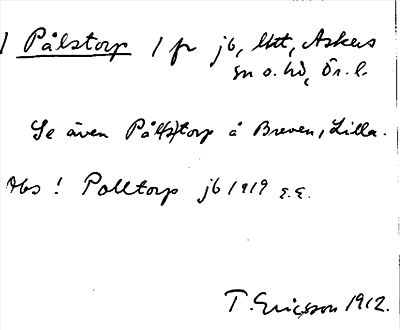 Pålstorp 1 fr jb, Utt, Askers
sn o. hd, Ör. l.
Se även Pål(s)torp å Breven, Lilla.
Obs! Palltorp jb 1919 E.E.
T. Ericsson 1912.